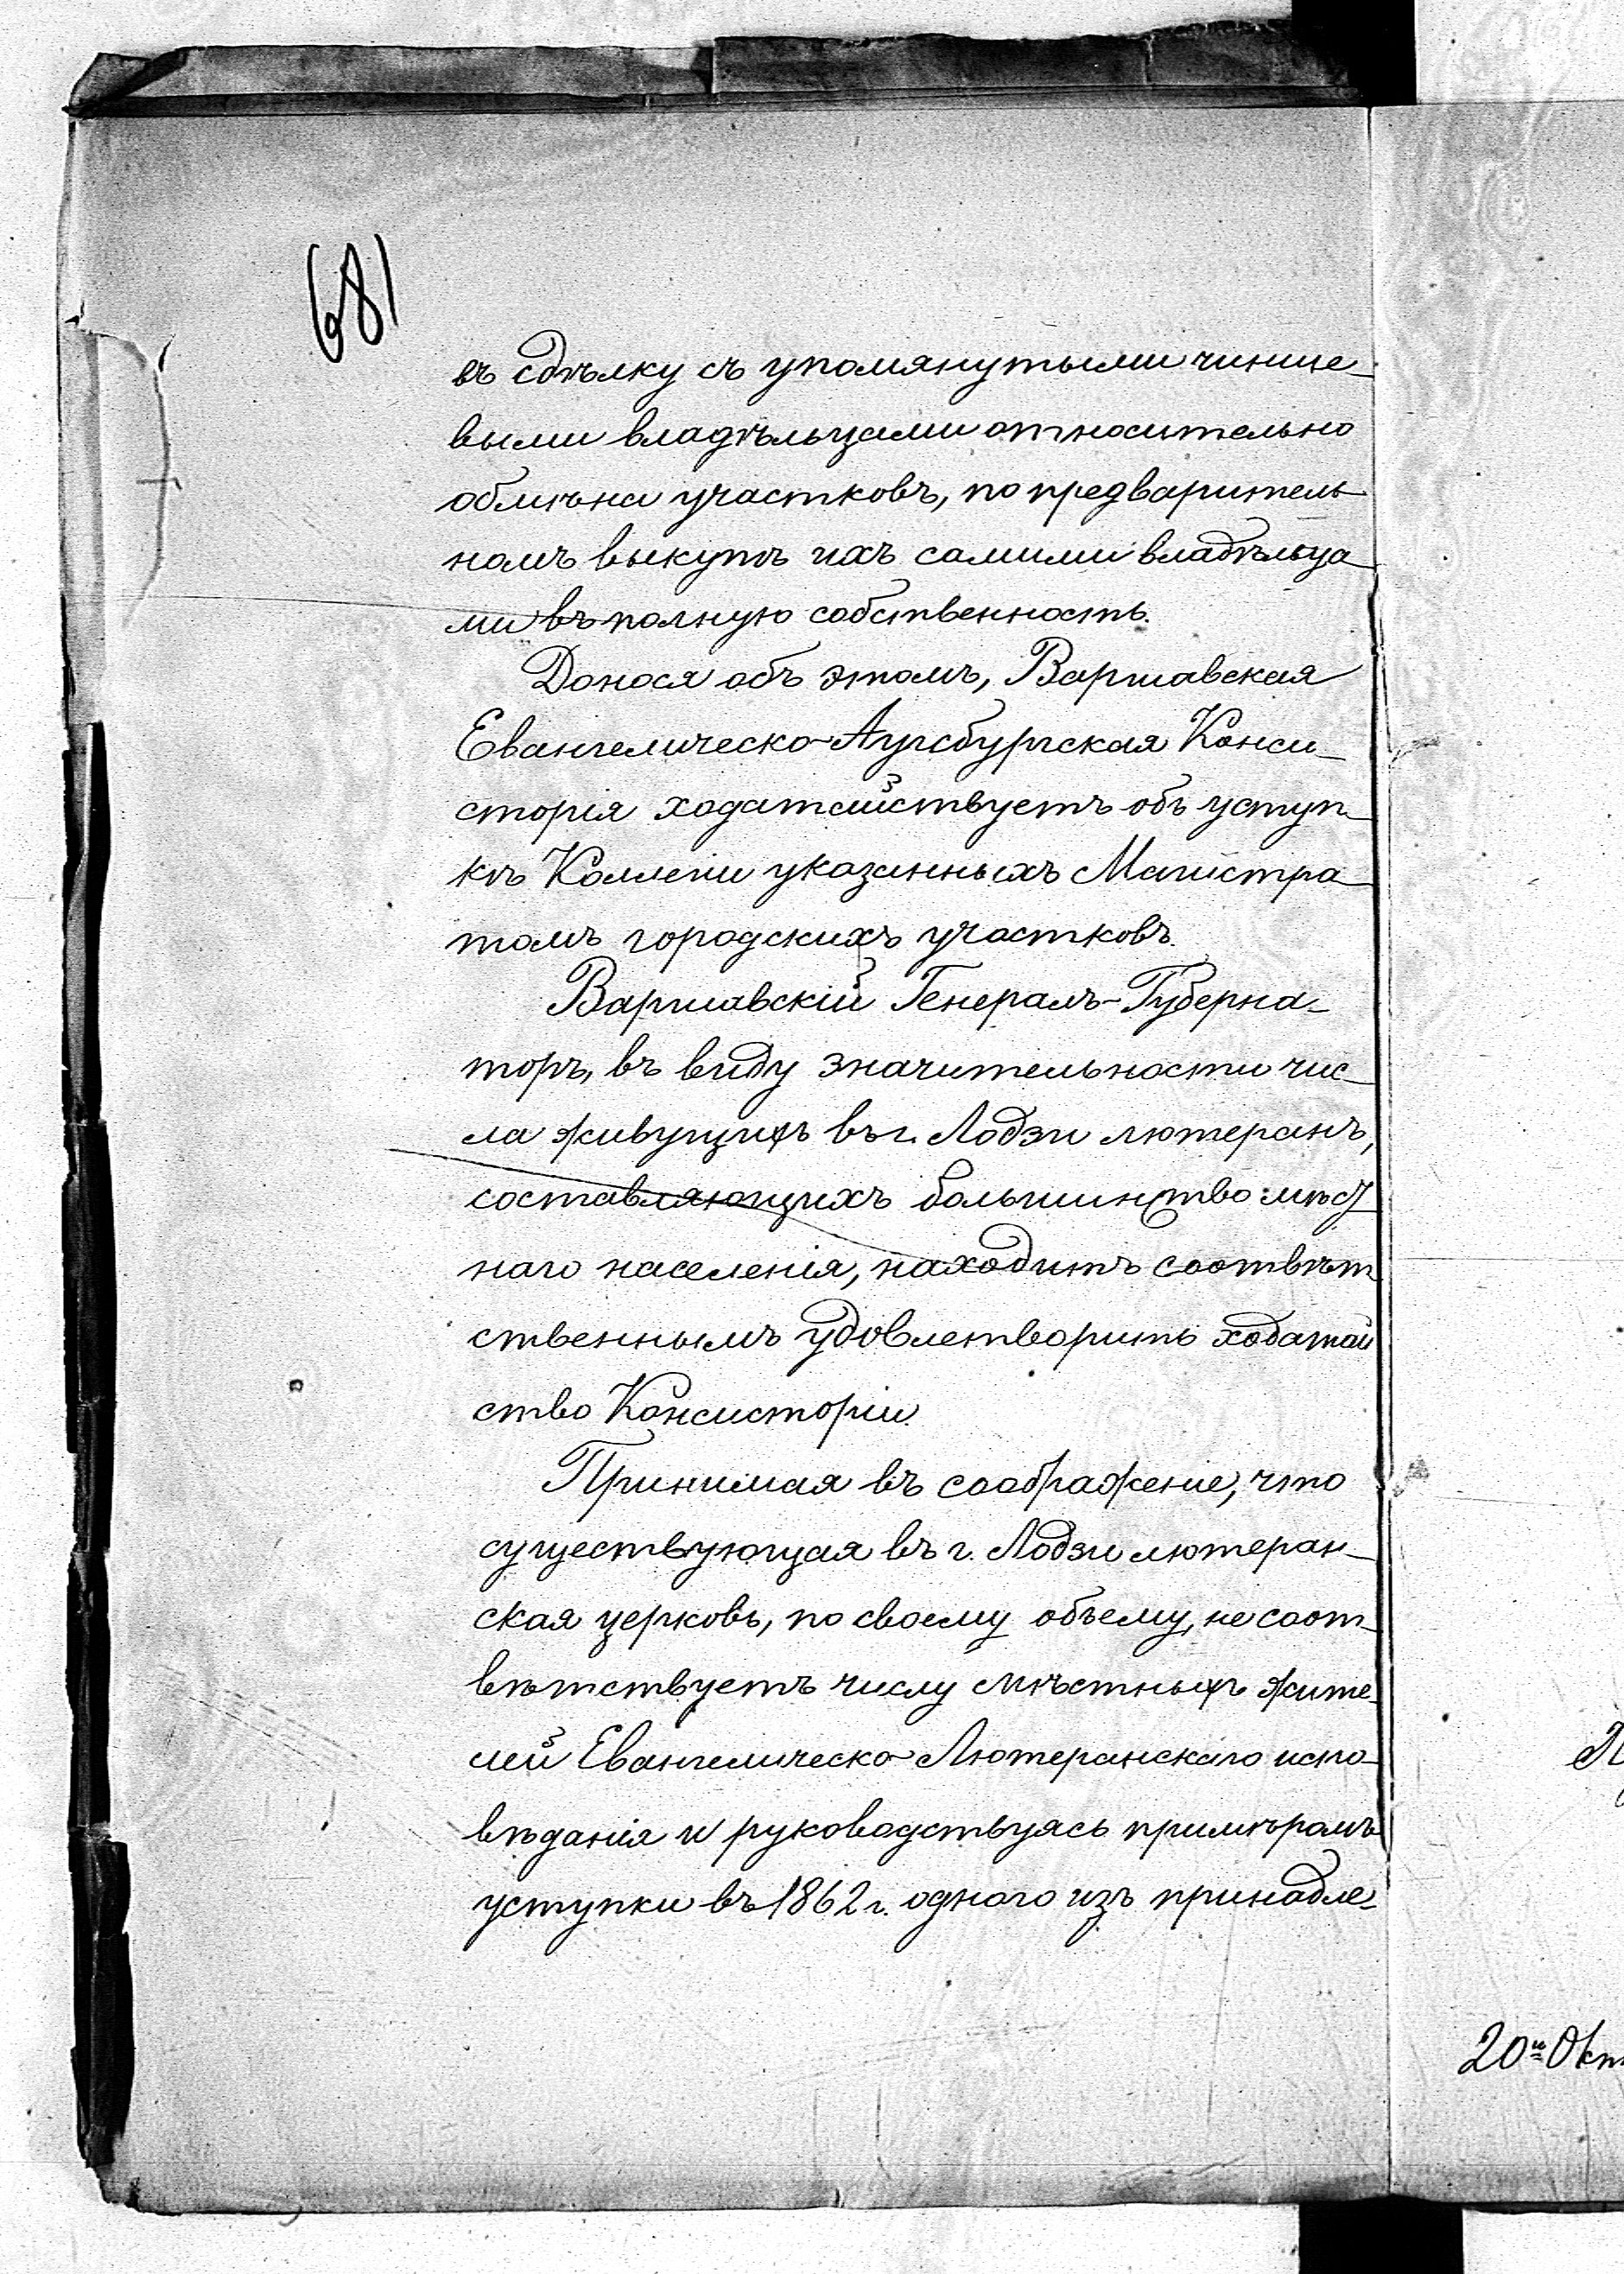 681
въ сдѣлку съ упомянутыми чинше-
выми владѣльцами относительно
обмѣна участковъ, по предваритель-
номъ выкупѣ ихъ самими владѣльца-
ми въ полную собственность.
Донося объ этомъ, Варшавская
Евангелическо-Аугсбургская Конси-
сторія ходатайствуетъ объ уступ-
кѣ Коллегіи указанныхъ Магистра-
томъ городскихъ участковъ.
Варшавскій Генералъ-Губерна-
торъ, въ виду значительности чис-
ла живущихъ въ г. Лодзи лютеранъ,
составляющихъ большинство мѣст-
наго населенія, находитъ соотвѣт-
ственнымъ удовлетворить ходатай-
ство Консисторіи.
Принимая въ соображеніе, что
существующая въ г. Лодзи лютеран-
ская церковь, по своему объему, не соот-
вѣтствуетъ числу мѣстныхъ жите-
лей Евангелическо-Лютеранскаго испо-
вѣданія и руководствуясь примѣромъ
уступки въ 1862 г. одного изъ принадле-
20 Окт